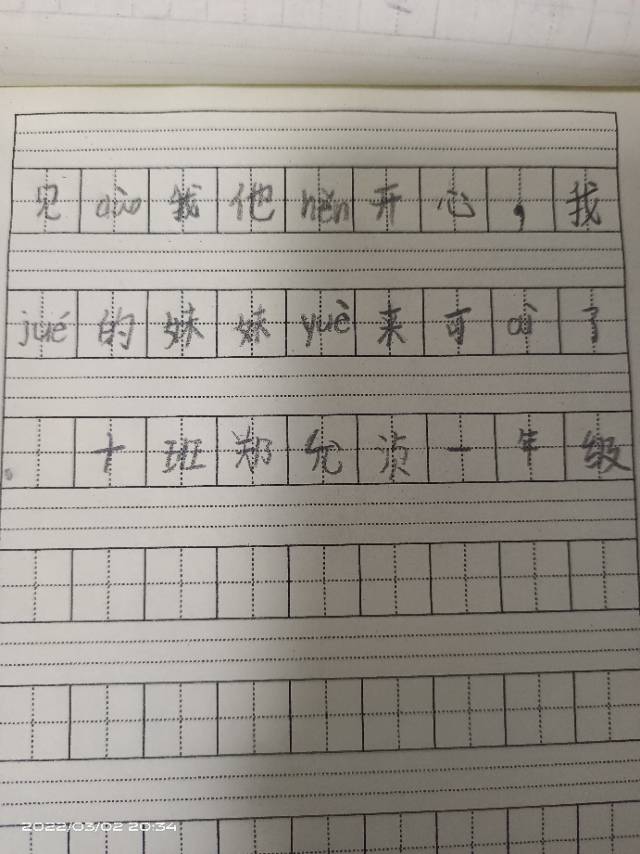 见 我他hěn开心,我
jué的妹妹yuè来可ài了
。十班郑允浈一年级
2022/03/02 20:34